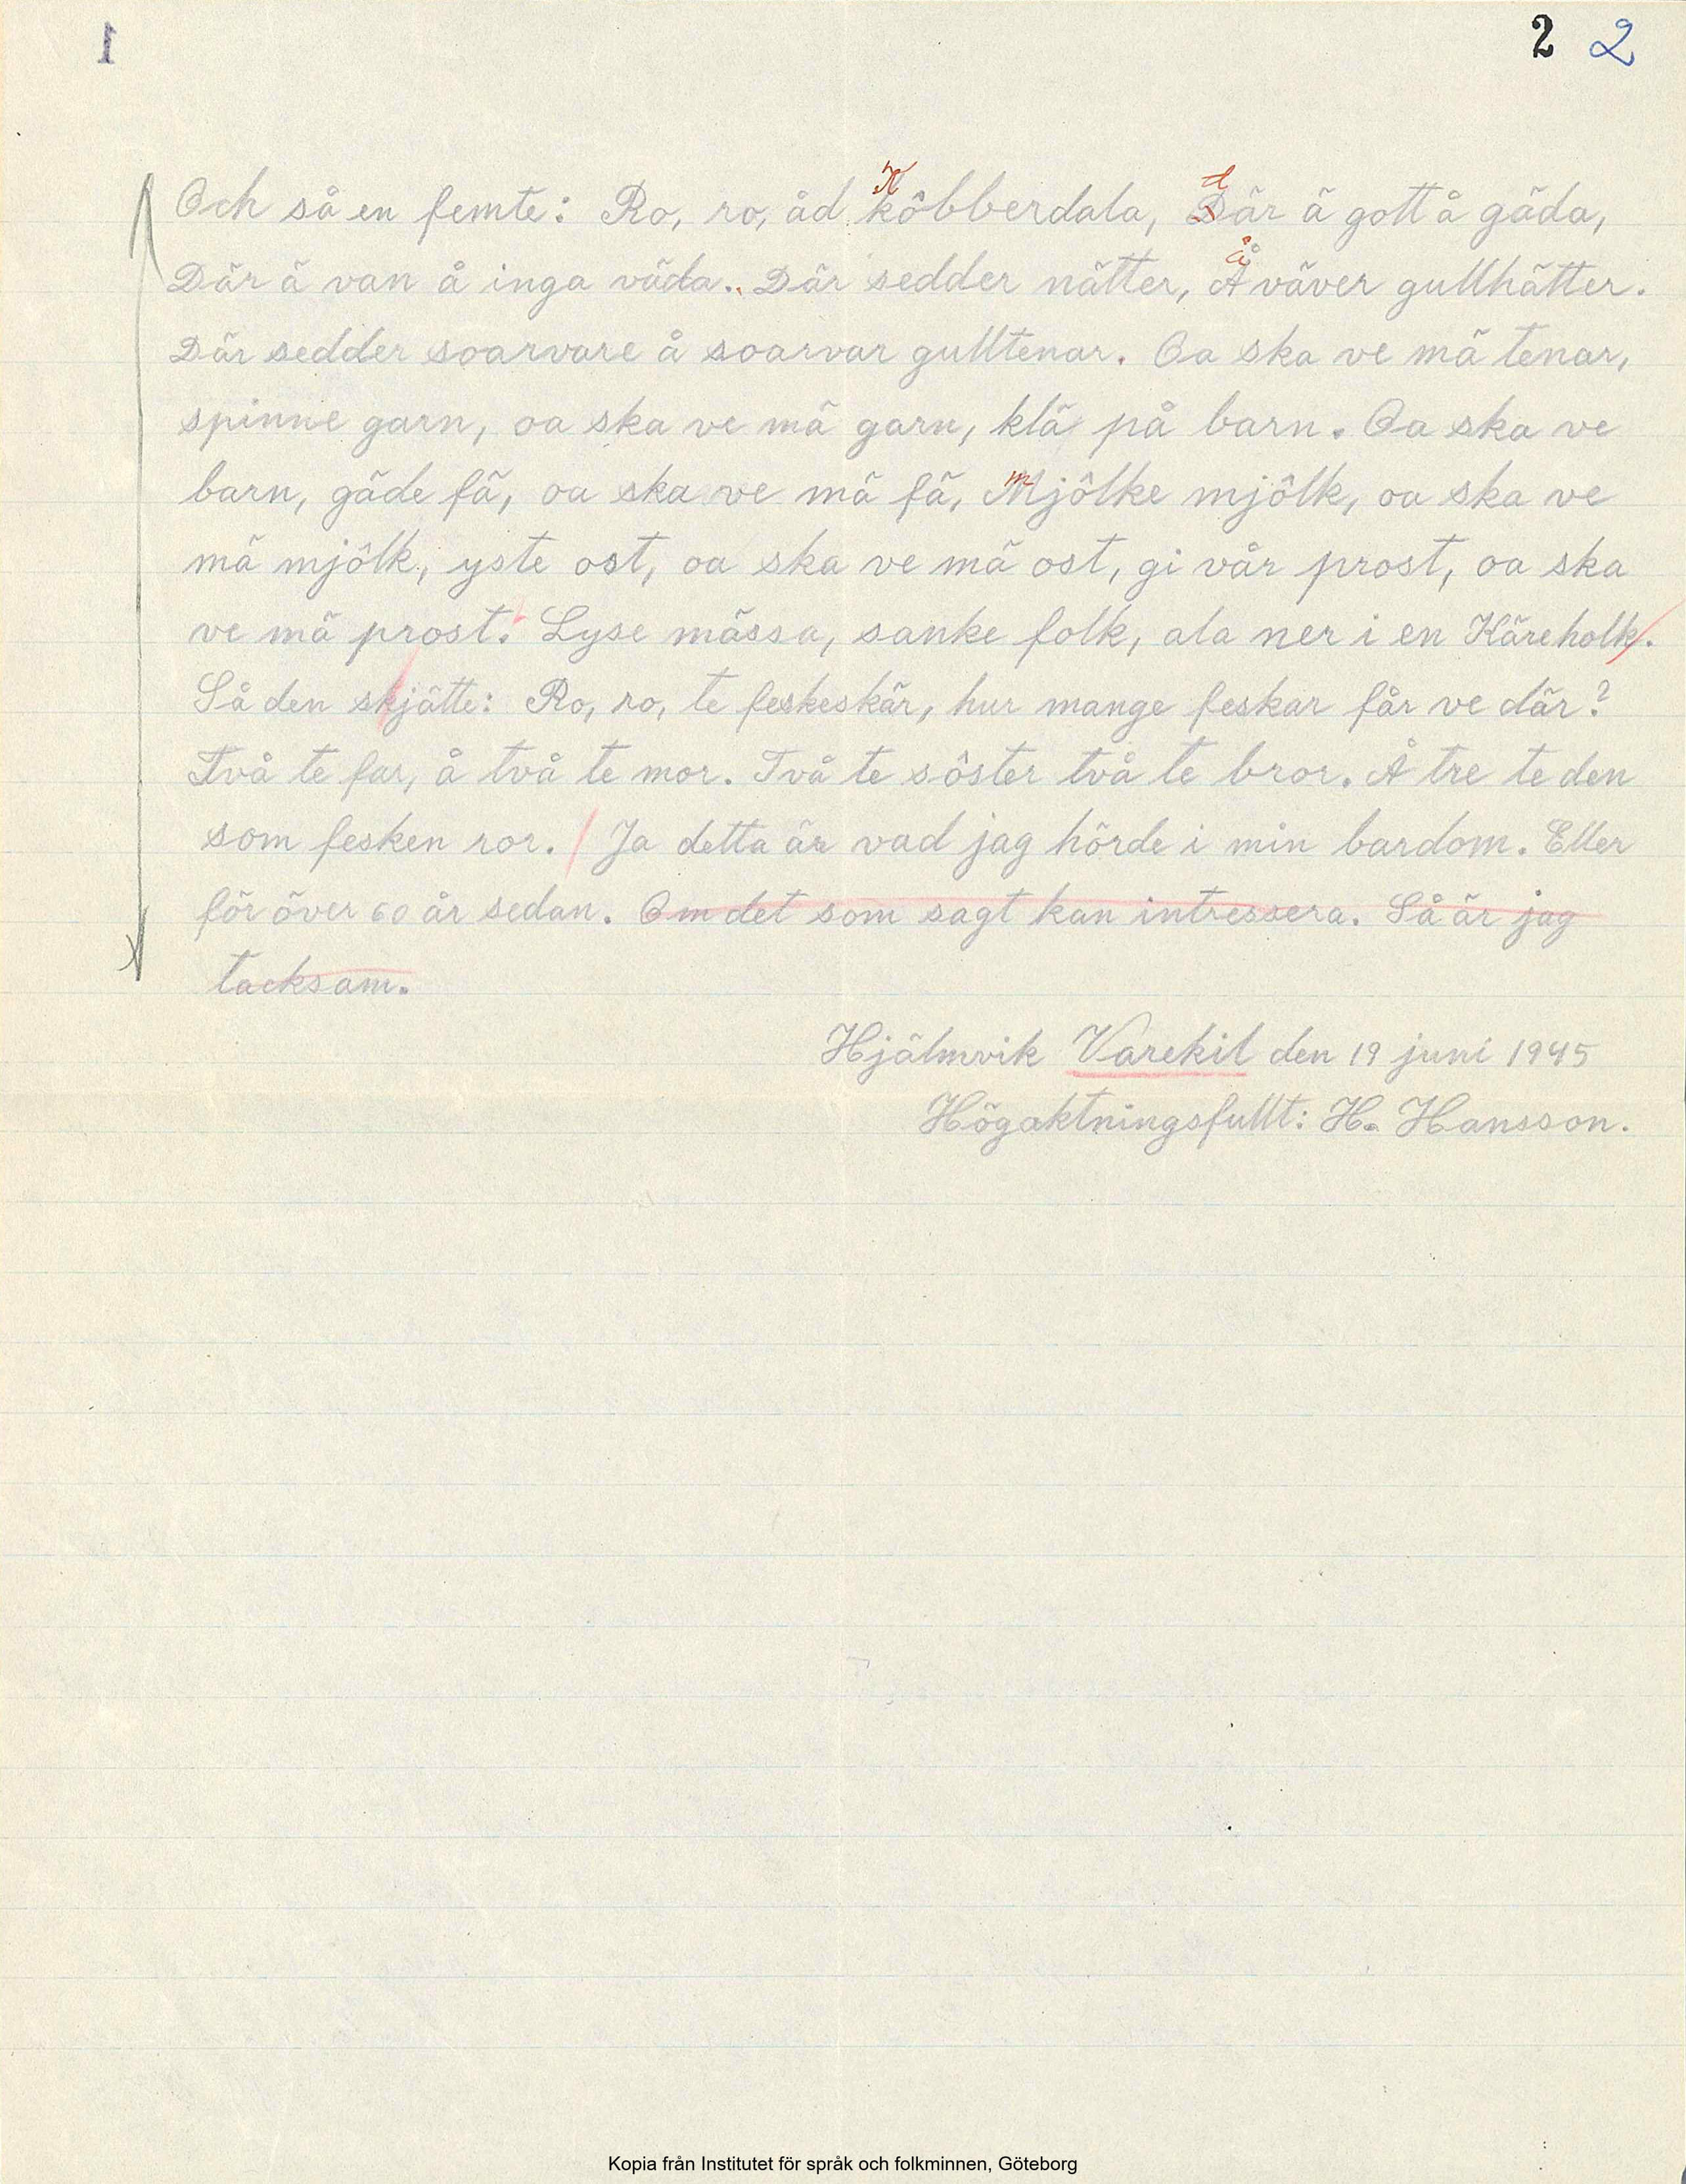 1
2 2
Och så en femte: Ro, ro, åd Kôbberdala, där ä gott å gäda,
Där ä van å inga väda. Där sedder nätter, å väver gullhätter.
Där sedder soarvare å soarvar gulltenar. Oa ska ve mä tenar,
spinne garn, oa ska ve mä garn, klä på barn. Oa ska ve
barn, gäde fä, oa ska ve mä fä, mjôlke mjôlk, oa ska ve
mä mjôlk, yste ost, oa ska ve mä ost, gi vår prost, oa ska
ve mä prost. Lyse mässa, sanke folk, ala ner i en Käreholk.
Så den skjätte: Ro, ro, te feskeskär, hur mange feskar får ve där?
Två te far, å två te mor. Två te sôster två te bror. Å tre te den
som fesken ror. / Ja detta är vad jag hörde i min bardom. Eller
för över 60 år sedan. Om det som sagt kan intressera. Så är jag
tacksam.
Hjälmvik Varekil den 19 juni 1945
Högaktningsfullt: H. Hansson.
Kopia från Institutet för språk och folkminnen, Göteborg